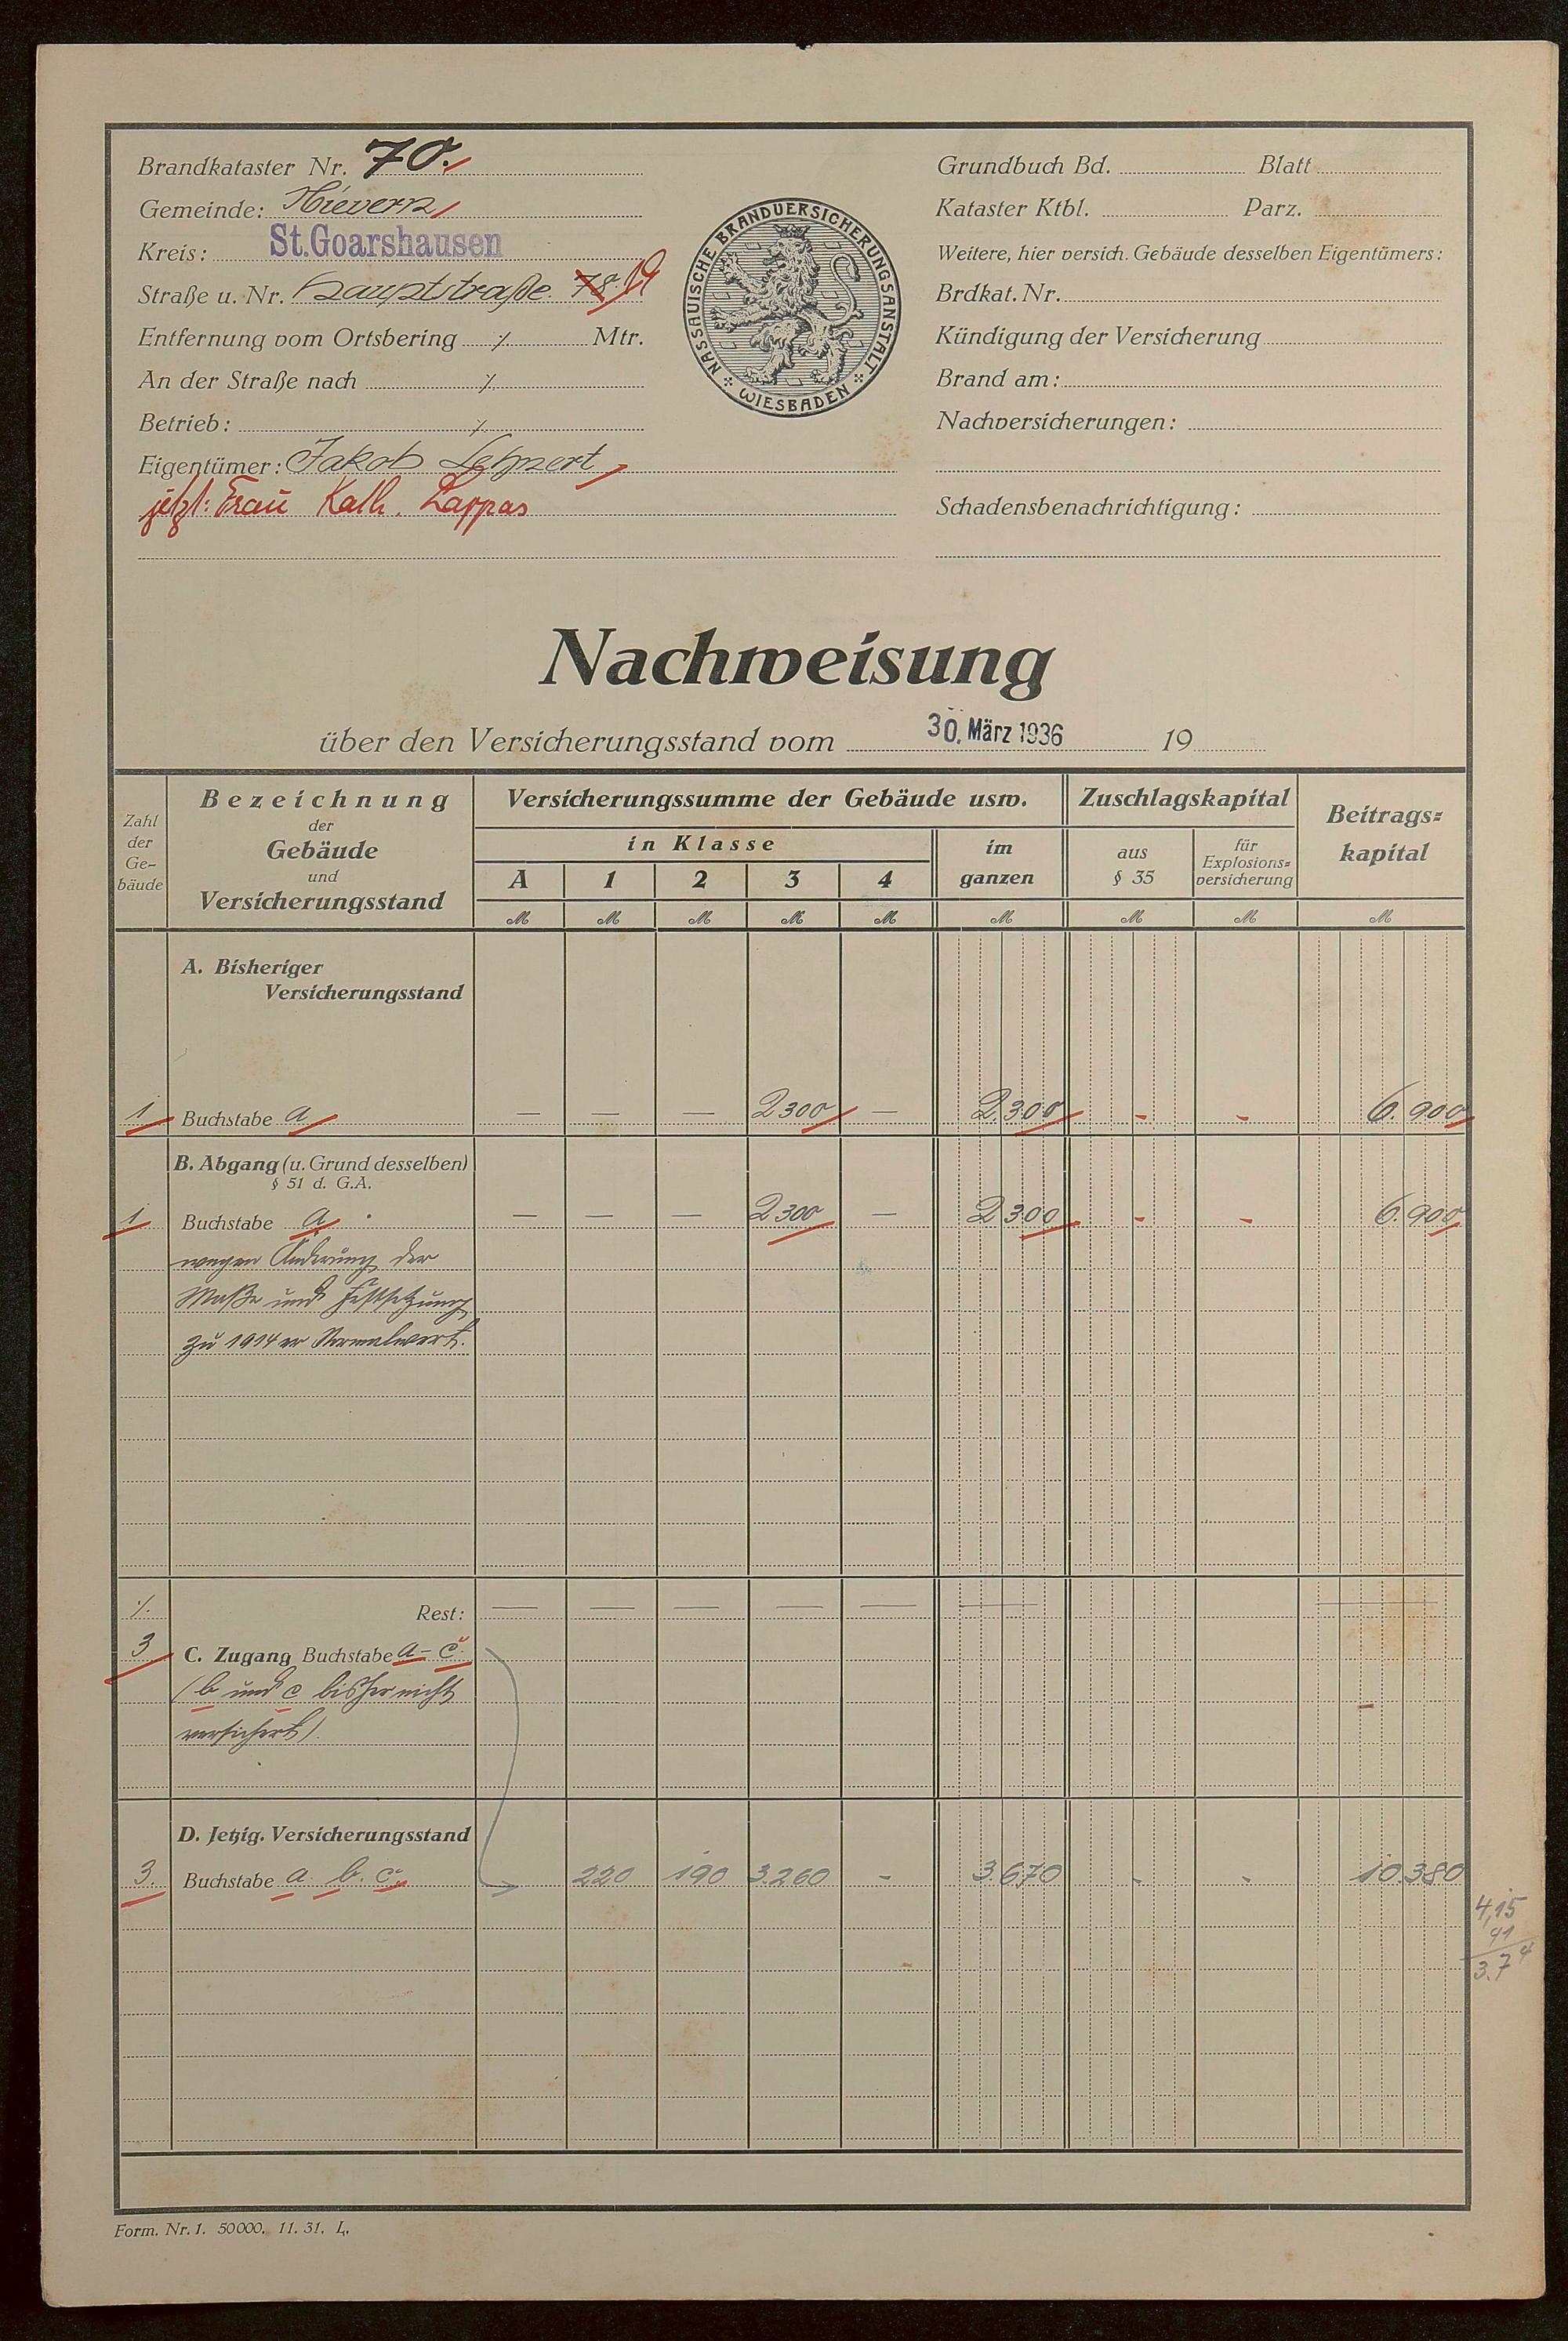 Brandkataster Nr. 70.
Gemeinde: Nievern
Kreis: St. Goarshausen
Straße u. Nr. Hauptstraße 78 19
Entfernung vom Ortsbering ⁒ Mtr.
An der Straße nach ⁒
Betrieb: ⁒
Eigentümer: Jakob Lehnert
jetzt: Frau Kath. Lappas
NASSAUISCHE BRANDVERSICHERUNGSANSTALT WIESBADEN
Grundbuch Bd. Blatt
Kataster Ktbl. Parz.
Weitere, hier versich. Gebäude desselben Eigentümers:
Brdkat. Nr.
Kündigung der Versicherung
Brand am:
Nachversicherungen:
Schadensbenachrichtigung:
Nachweisung
über den Versicherungsstand vom 30. März 1936 19
Zahl der Ge-bäude
Bezeichnung
der
Gebäude
und
Versicherungsstand
Versicherungssumme der Gebäude usw.
in Klasse
A 1 2 3 4
im ganzen
Zuschlagskapital
aus § 35
für Explosions-versicherung
Beitrags-kapital
M M M M M M M M M
A. Bisheriger
Versicherungsstand
1 Buchstabe a — — — 2300 — 2300 - - 6.900
B. Abgang (u. Grund desselben)
§ 51 d. G.A.
1 Buchstabe a — — — 2300 — 2300 - - 6.900
wegen Änderung der
Maße und Festsetzung
zu 1914er Normalwert.
⁒ Rest: — — — — — — —
3 C. Zugang Buchstabe a - c.
(b und c bisher nicht
versichert)
D. Jetzig. Versicherungsstand
3. Buchstabe a. b. c. 220 190 3.260 - 3.670 - - 10.380
4,15
91
3.74
Form. Nr. 1. 50000. 11. 31. L.